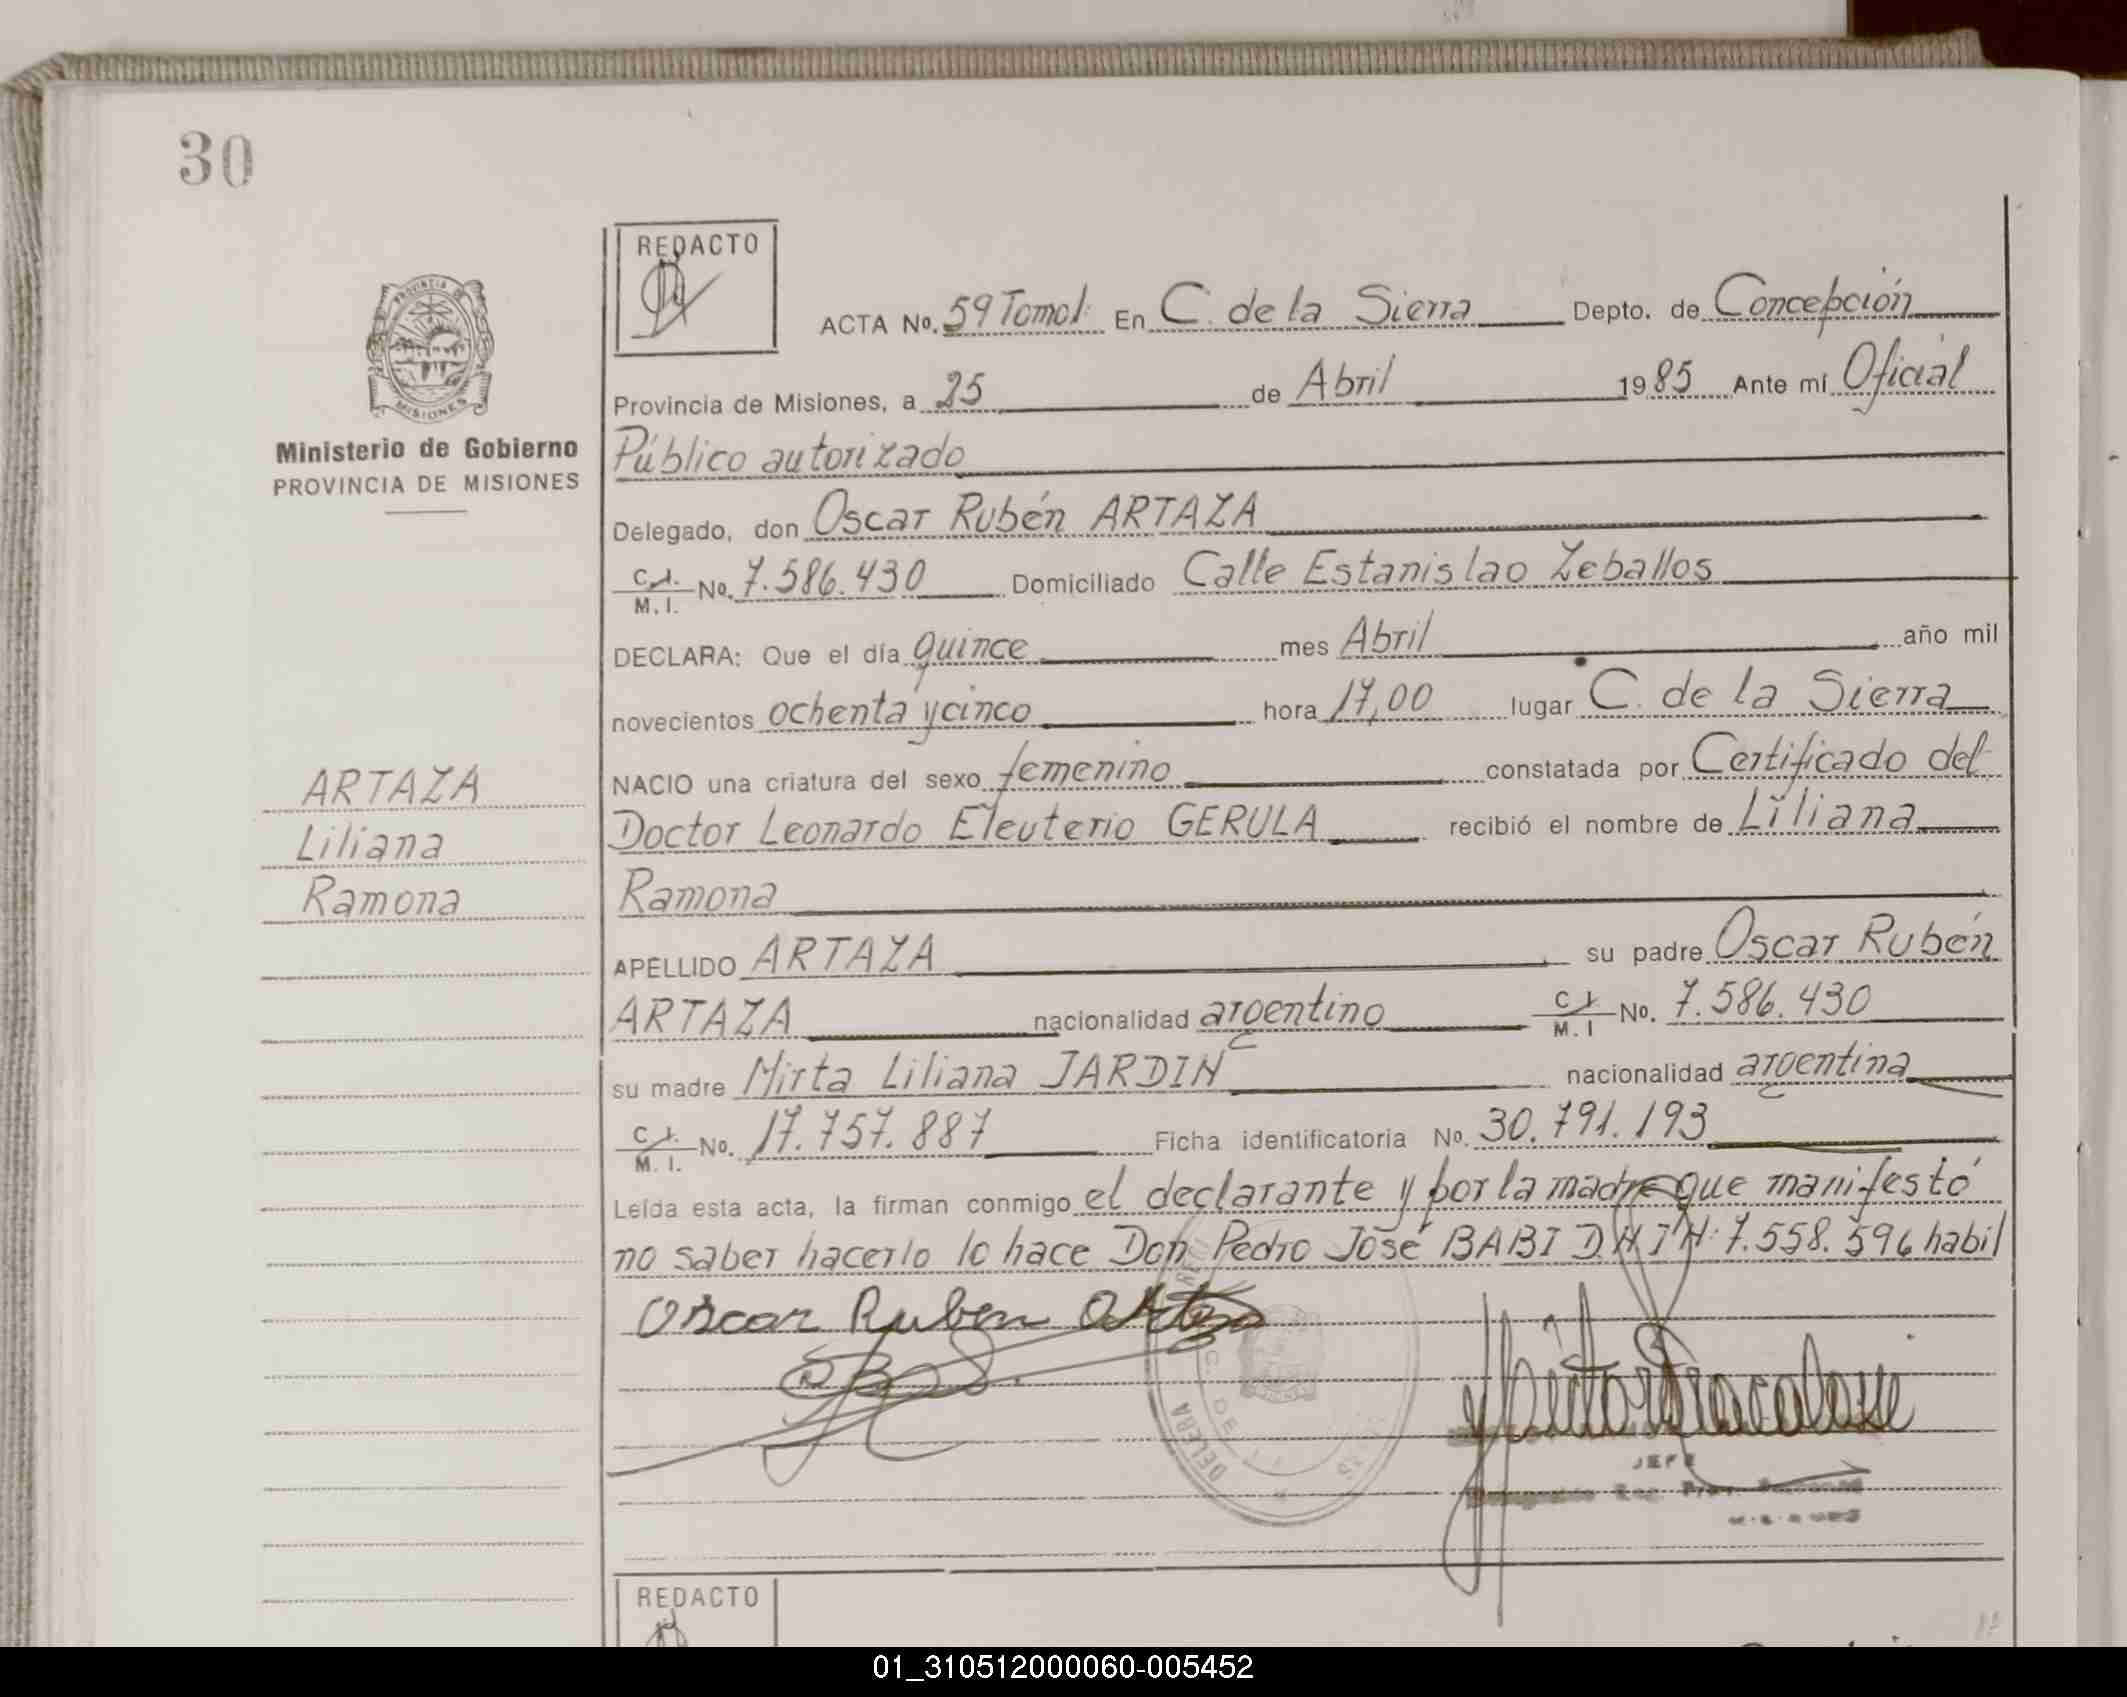 30
REDACTO
ACTA No. 59 Tomo I. En C. de la Sierra Depto. de Concepción
Provincia de Misiones, a 25 de Abril 1985 Ante mí Oficial
Público autorizado
Ministerio de Gobierno
PROVINCIA DE MISIONES
Delegado, don Oscar Rubén ARTAZA
C.I. M.I. No. 7.586.430 Domiciliado Calle Estanislao Zeballos
DECLARA: Que el día quince mes Abril año mil
novecientos ochenta y cinco hora 17,00 lugar C. de la Sierra
NACIO una criatura del sexo femenino constatada por Certificado del
Doctor Leonardo Eleuterio GERULA recibió el nombre de Liliana
Ramona
ARTAZA
Liliana
Ramona
APELLIDO ARTAZA su padre Oscar Rubén
ARTAZA nacionalidad argentino C.I. M.I No. 7.586.430
su madre Mirta Liliana JARDIN nacionalidad argentina
C.I. M.I. No. 17.757.887 Ficha identificatoria No. 30.791.193
Leída esta acta, la firman conmigo el declarante y por la madre que manifestó
no saber hacerlo lo hace Don Pedro José BABI D.N.I N: 7.558.596 habil
Oscar Ruben Artaza
JEFE
REDACTO
01_310512000060-005452